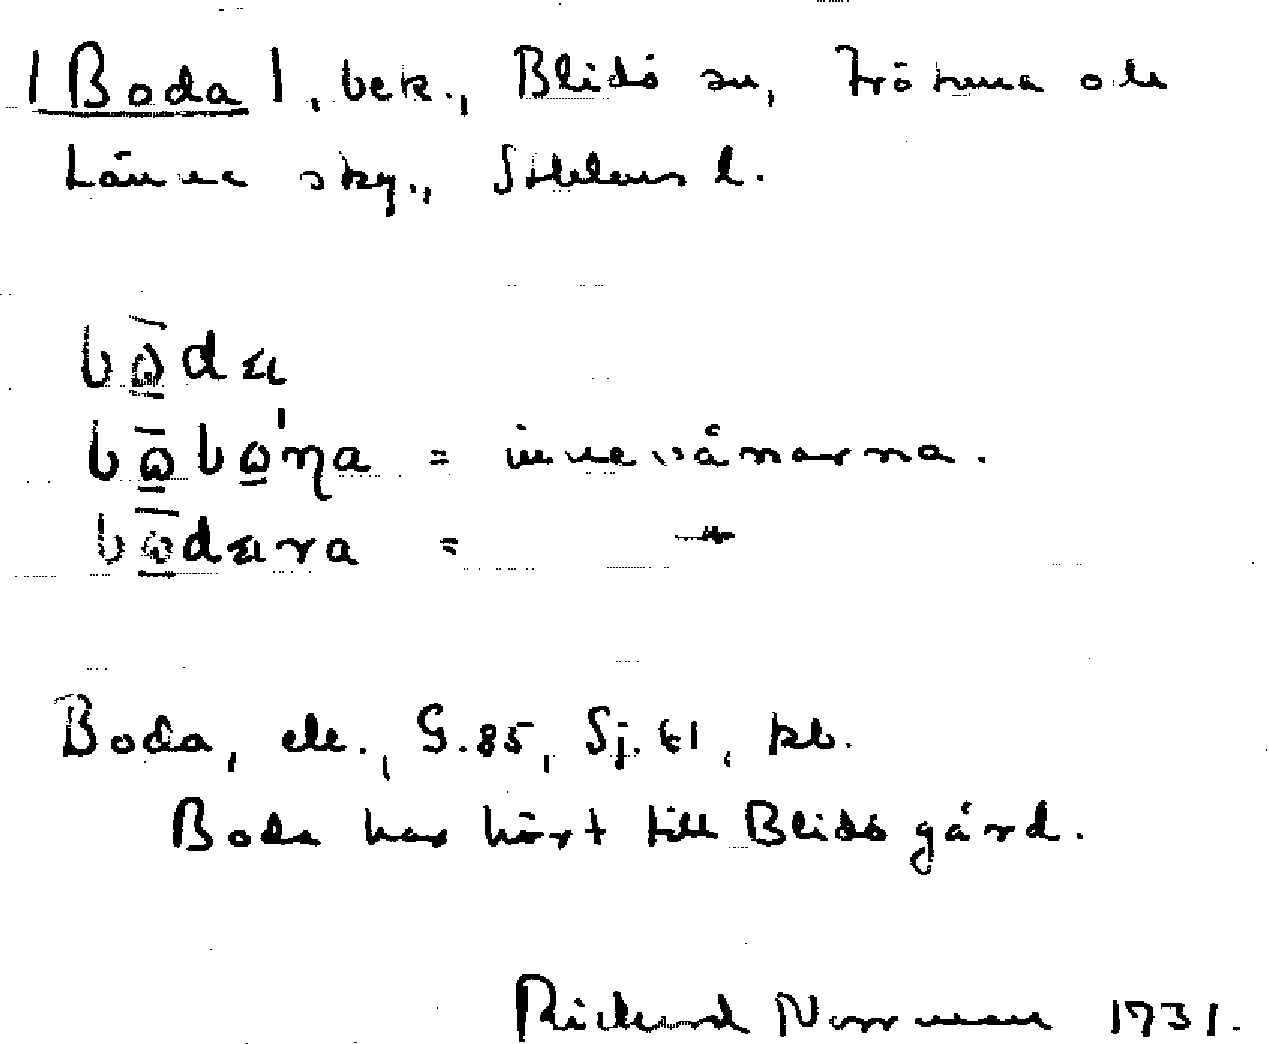 |Boda|, bek., Blidö sn, Frötuna och
Länna skg., Sthlms l.
bo̱da
bo̱bo̱'ŋa = innevånarna.
bo̱dara = –"–
Boda, ek., G.85, Sj. 61, kb.
Boda har hört till Blidö gård.
Rickard Norrman 1931.